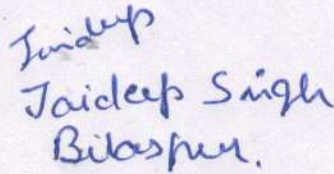 Jaideep
Jaideep Singh
Bilaspur.